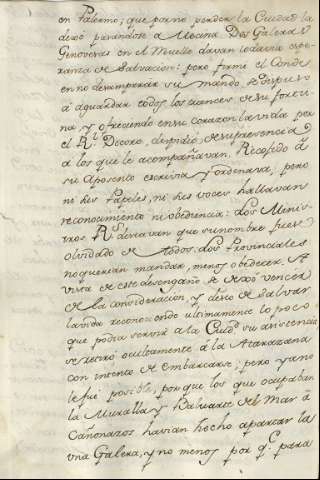 en Palermo; que por no perder la Ciudad la
dexò parandose a Mecina Dos Galeras
Genovesas en el Muelle davan todavia espe-
ranza de Salvacion: pero firme el Conde
en no desamparar su mando, se dispuso
à aguardar todos los trances de su fortu-
na, y ofreciendo en su corazon la vida por
el Rl. Decoro, despidiò de su presencia
a los que le acompañavan. Recogido à
su Aposento escrivia y ordenava, pero
ni sus Papeles, ni sus voces hallavan
reconocimiento ni obediencia: los Minis-
tros Rs. decian que su nombre fuese
olvidado de todos. los Provinciales
no querian mandar, menos obedecer. A
vista de este desengaño se dexò vencer
de la consideracion, y deseo de salvar
la vida reconociendo ultimamente lo poco
que podia servir a la Ciud. su asistencia
se retirò ocultamente à la Atarazana
con intento de embarcarse; pero ya no
le fué posible, porque los que ocupaban
la Muralla y Baluarte del Mar à
Cañonazos havian hecho apartar la
una Galera, y no menos por q.e para